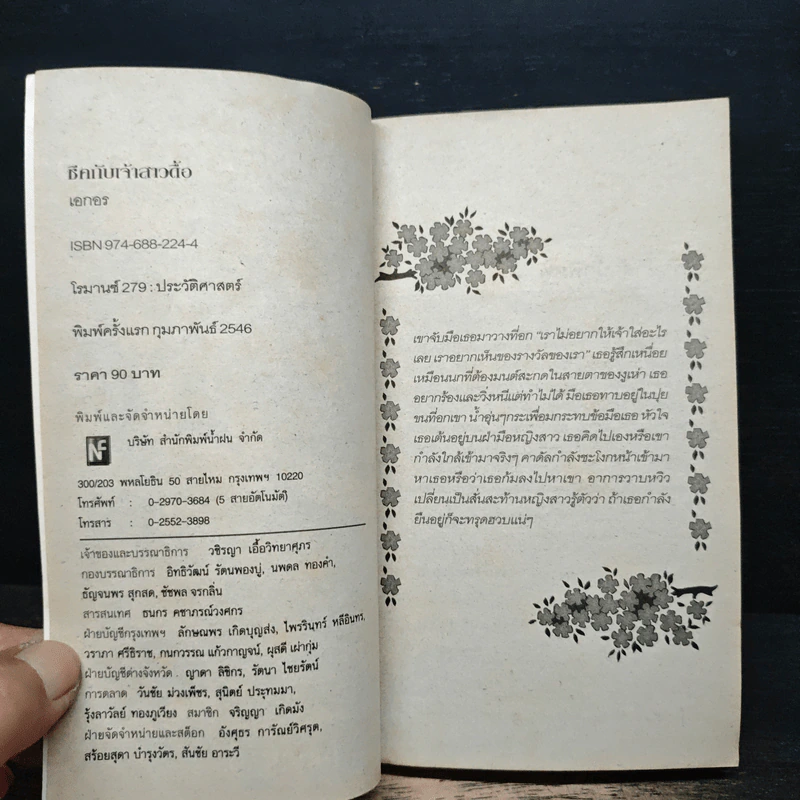 ชีคกับเจ้าสาวดื้อ
เอกอร
ISBN 974-688-224-4
โรมานซ์ 279 : ประวัติศาสตร์
พิมพ์ครั้งแรก กุมภาพันธ์ 2546
ราคา 90 บาท
พิมพ์และจัดจำหน่ายโดย
NF บริษัท สำนักพิมพ์น้ำฝน จำกัด
300/203 พหลโยธิน 50 สายไหม กรุงเทพฯ 10220
โทรศัพท์ : 0-2970-3684 (5 สายอัตโนมัติ)
โทรสาร : 0-2552-3898
เจ้าของและบรรณาธิการ วชิรญา เอื้อวิทยาศุภร
กองบรรณาธิการ อิทธิวัฒน์ รัตนพองบู่, นพดล ทองคำ,
ธัญจนพร สุกสด, ชัชพล จรกลิ่น
สารสนเทศ ธนกร คชาภรณ์วงศกร
ฝ่ายบัญชีกรุงเทพฯ ลักษณพร เกิดบุญส่ง, ไพรรินทร์ หลีอินทร,
วราภา ศรีธิราช, กนกวรรณ แก้วกาญจน์, ผุสดี เผ่ากุ่ม
ฝ่ายบัญชีต่างจังหวัด ญาดา ลิซิกร, รัตนา ไชยรัตน์
การตลาด วันชัย ม่วงเพ็ชร, สุนิตย์ ประทุมมา,
รุ้งลาวัลย์ ทองภูเวียง สมาชิก จริญญา เกิดมัง
ฝ่ายจัดจำหน่ายและสต็อก อังศุธร การัณย์วิศรุต,
สร้อยสุดา บำรุงวัตร, สันชัย อาระวี
เขาจับมือเธอมาวางที่อก "เราไม่อยากให้เจ้าใส่อะไร
เลย เราอยากเห็นของรางวัลของเรา" เธอรู้สึกเหนื่อย
เหมือนนกที่ต้องมนต์สะกดในสายตาของงูเห่า เธอ
อยากร้องและวิ่งหนีแต่ทำไม่ได้ มือเธอทาบอยู่ในปุย
ขนที่อกเขา น้ำอุ่นๆกระเพื่อมกระทบข้อมือเธอ หัวใจ
เธอเต้นอยู่บนฝ่ามือหญิงสาว เธอคิดไปเองหรือเขา
กำลังใกล้เข้ามาจริงๆ คาดัลกำลังชะโงกหน้าเข้ามา
หาเธอหรือว่าเธอก้มลงไปหาเขา อาการวาบหวิว
เปลี่ยนเป็นสั่นสะท้านหญิงสาวรู้ตัวว่า ถ้าเธอกำลัง
ยืนอยู่ก็จะทรุดฮวบแน่ๆ